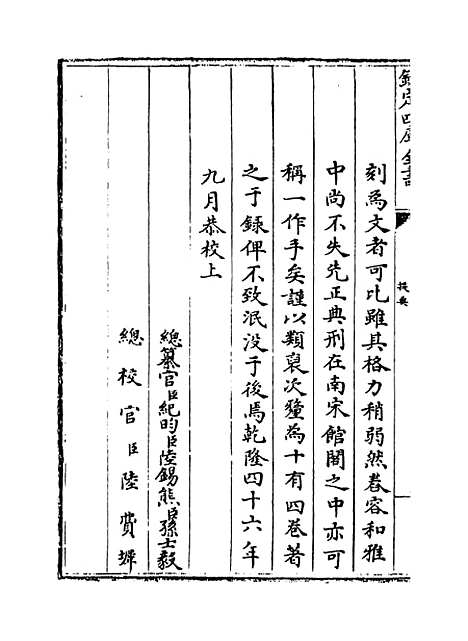 欽定四庫全書
提要
刻為文者可比雖其格力稍弱然舂容和雅
中尚不失先正典刑在南宋館閣之中亦可
稱一作手矣謹以類裒次釐為十有四卷著
之于録俾不致泯没于後焉乾隆四十六年
九月恭校上
總纂官臣紀昀臣陸錫熊臣孫士毅
總校官臣陸費墀